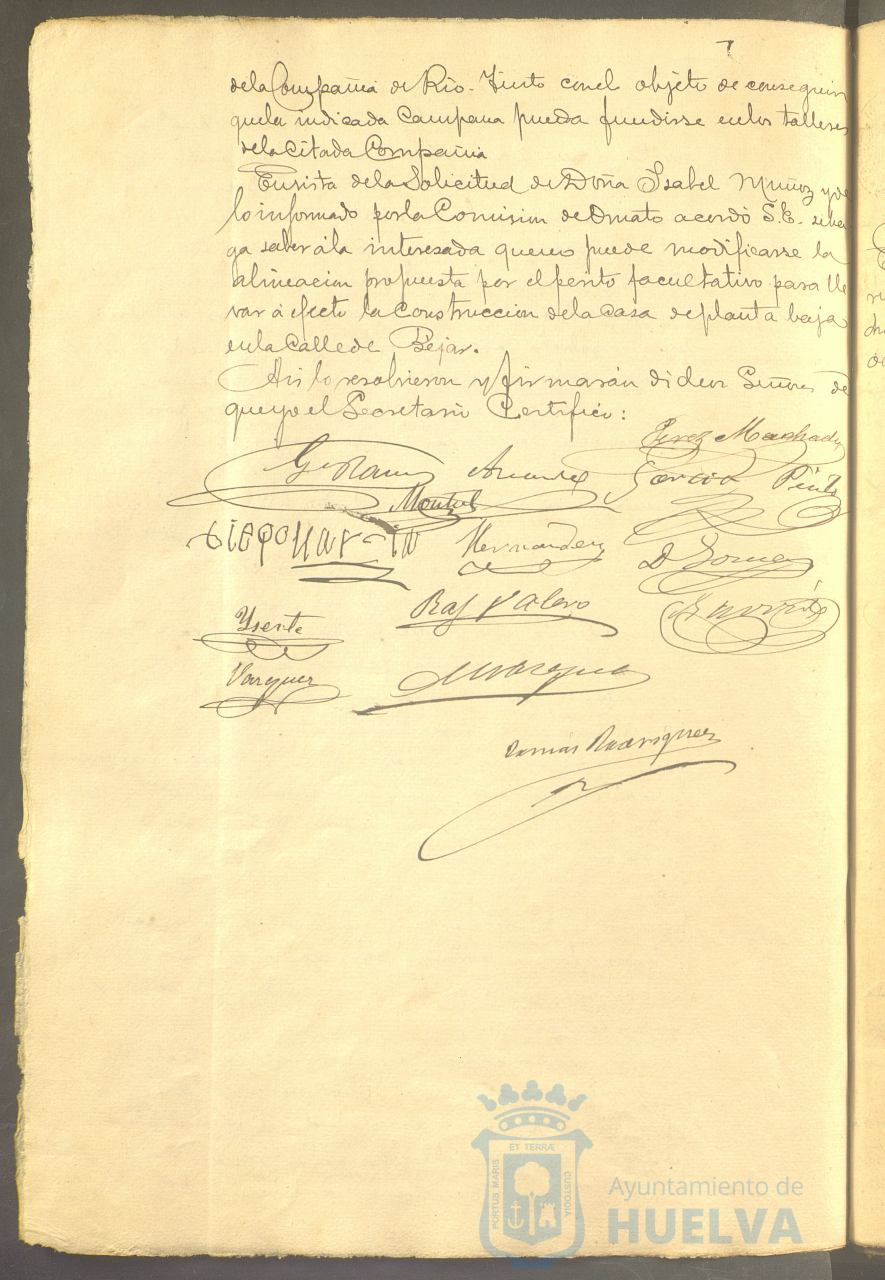 de la Compañia de Rio-Tinto con el objeto de conseguir
que la indicada Campana pueda fundirse en los talleres
de la citada Compañia
En vista de la Solicitud de Doña Isabel Muñoz y de
lo informado por la Comision de Ornato acordó S.E. se ha
ga saber á la interesada que no puede modificarse la
alineacion propuesta por el perito facultativo para lle
var á efecto la Construccion de la Casa de planta baja
en la Calle de Bejar.
Asi lo resolvieron y firmarán dichos Señores de
que yo el Secretario Certifico:
Perez Machado
Garcia Pinto
Montiel
Diego Martin Hernandez D Gomez
Raf Valero
Vazquez
Tomás Rodriguez
ET TERRÆ
PORTUS MARIS
CUSTODIA
Ayuntamiento de
HUELVA